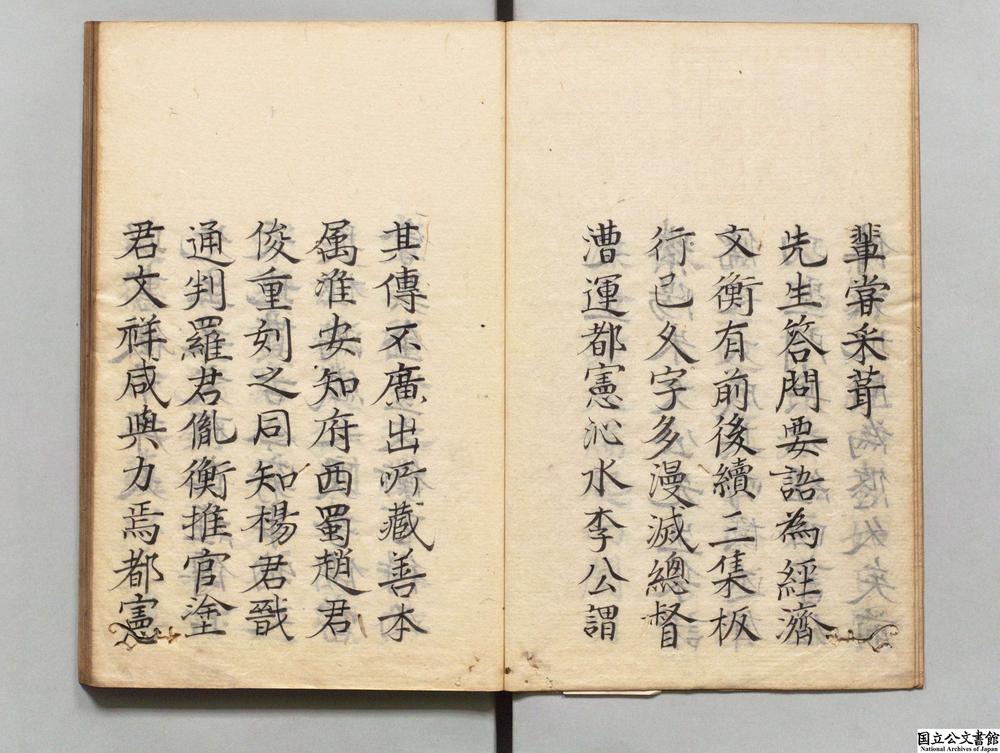 輩甞采葺
先生答問要語為經濟
文衡有前後續三集板
行已久字多漫滅總督
漕運都憲沁水李公謂
其傳不廣出所藏善本
属淮安知府西蜀趙君
俊重刻之同知楊君戩
通判羅君胤衡推官塗
君文祥咸與力焉都憲
国立公文書館
National Archives of Japan